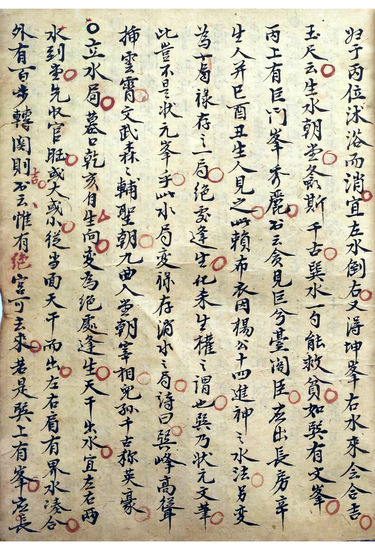 妇子丙位沐浴而消宜左水倒右又得坤峯右水来会合吉
玉尺云生水朝堂螽斯千古巽水一勺能救貧如巽有文峯
丙上有巨门峯秀麗云会見巨兮臺阁臣应出長房辛
生人并巳酉丑生人見之此賴布衣因楊公十四進神之水法另变
為十局禄存之一局絕処逢生化来生權之謂也巽乃状元文筆
此豈不是状元峯乎此水局变禄存消水之局詩曰巽峰高聳
插雲霄文武森之輔聖朝九曲入堂朝宰相兒孫千古称英豪
〇立水局墓口乾亥自生向变為絕處逢生天干出水宜左右两
水到堂先收官旺或大或小從当面天干而出左右肩有界水湊合
外有百步轉関則吉云惟有絕宫可去來若是巽上有峯应長